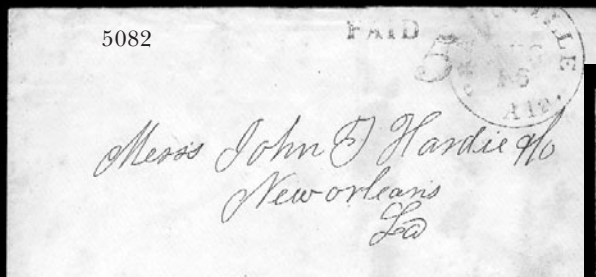 5082
PAID
5
LLE
Ala.
Messs John T Hardie & Co
New orleans
La